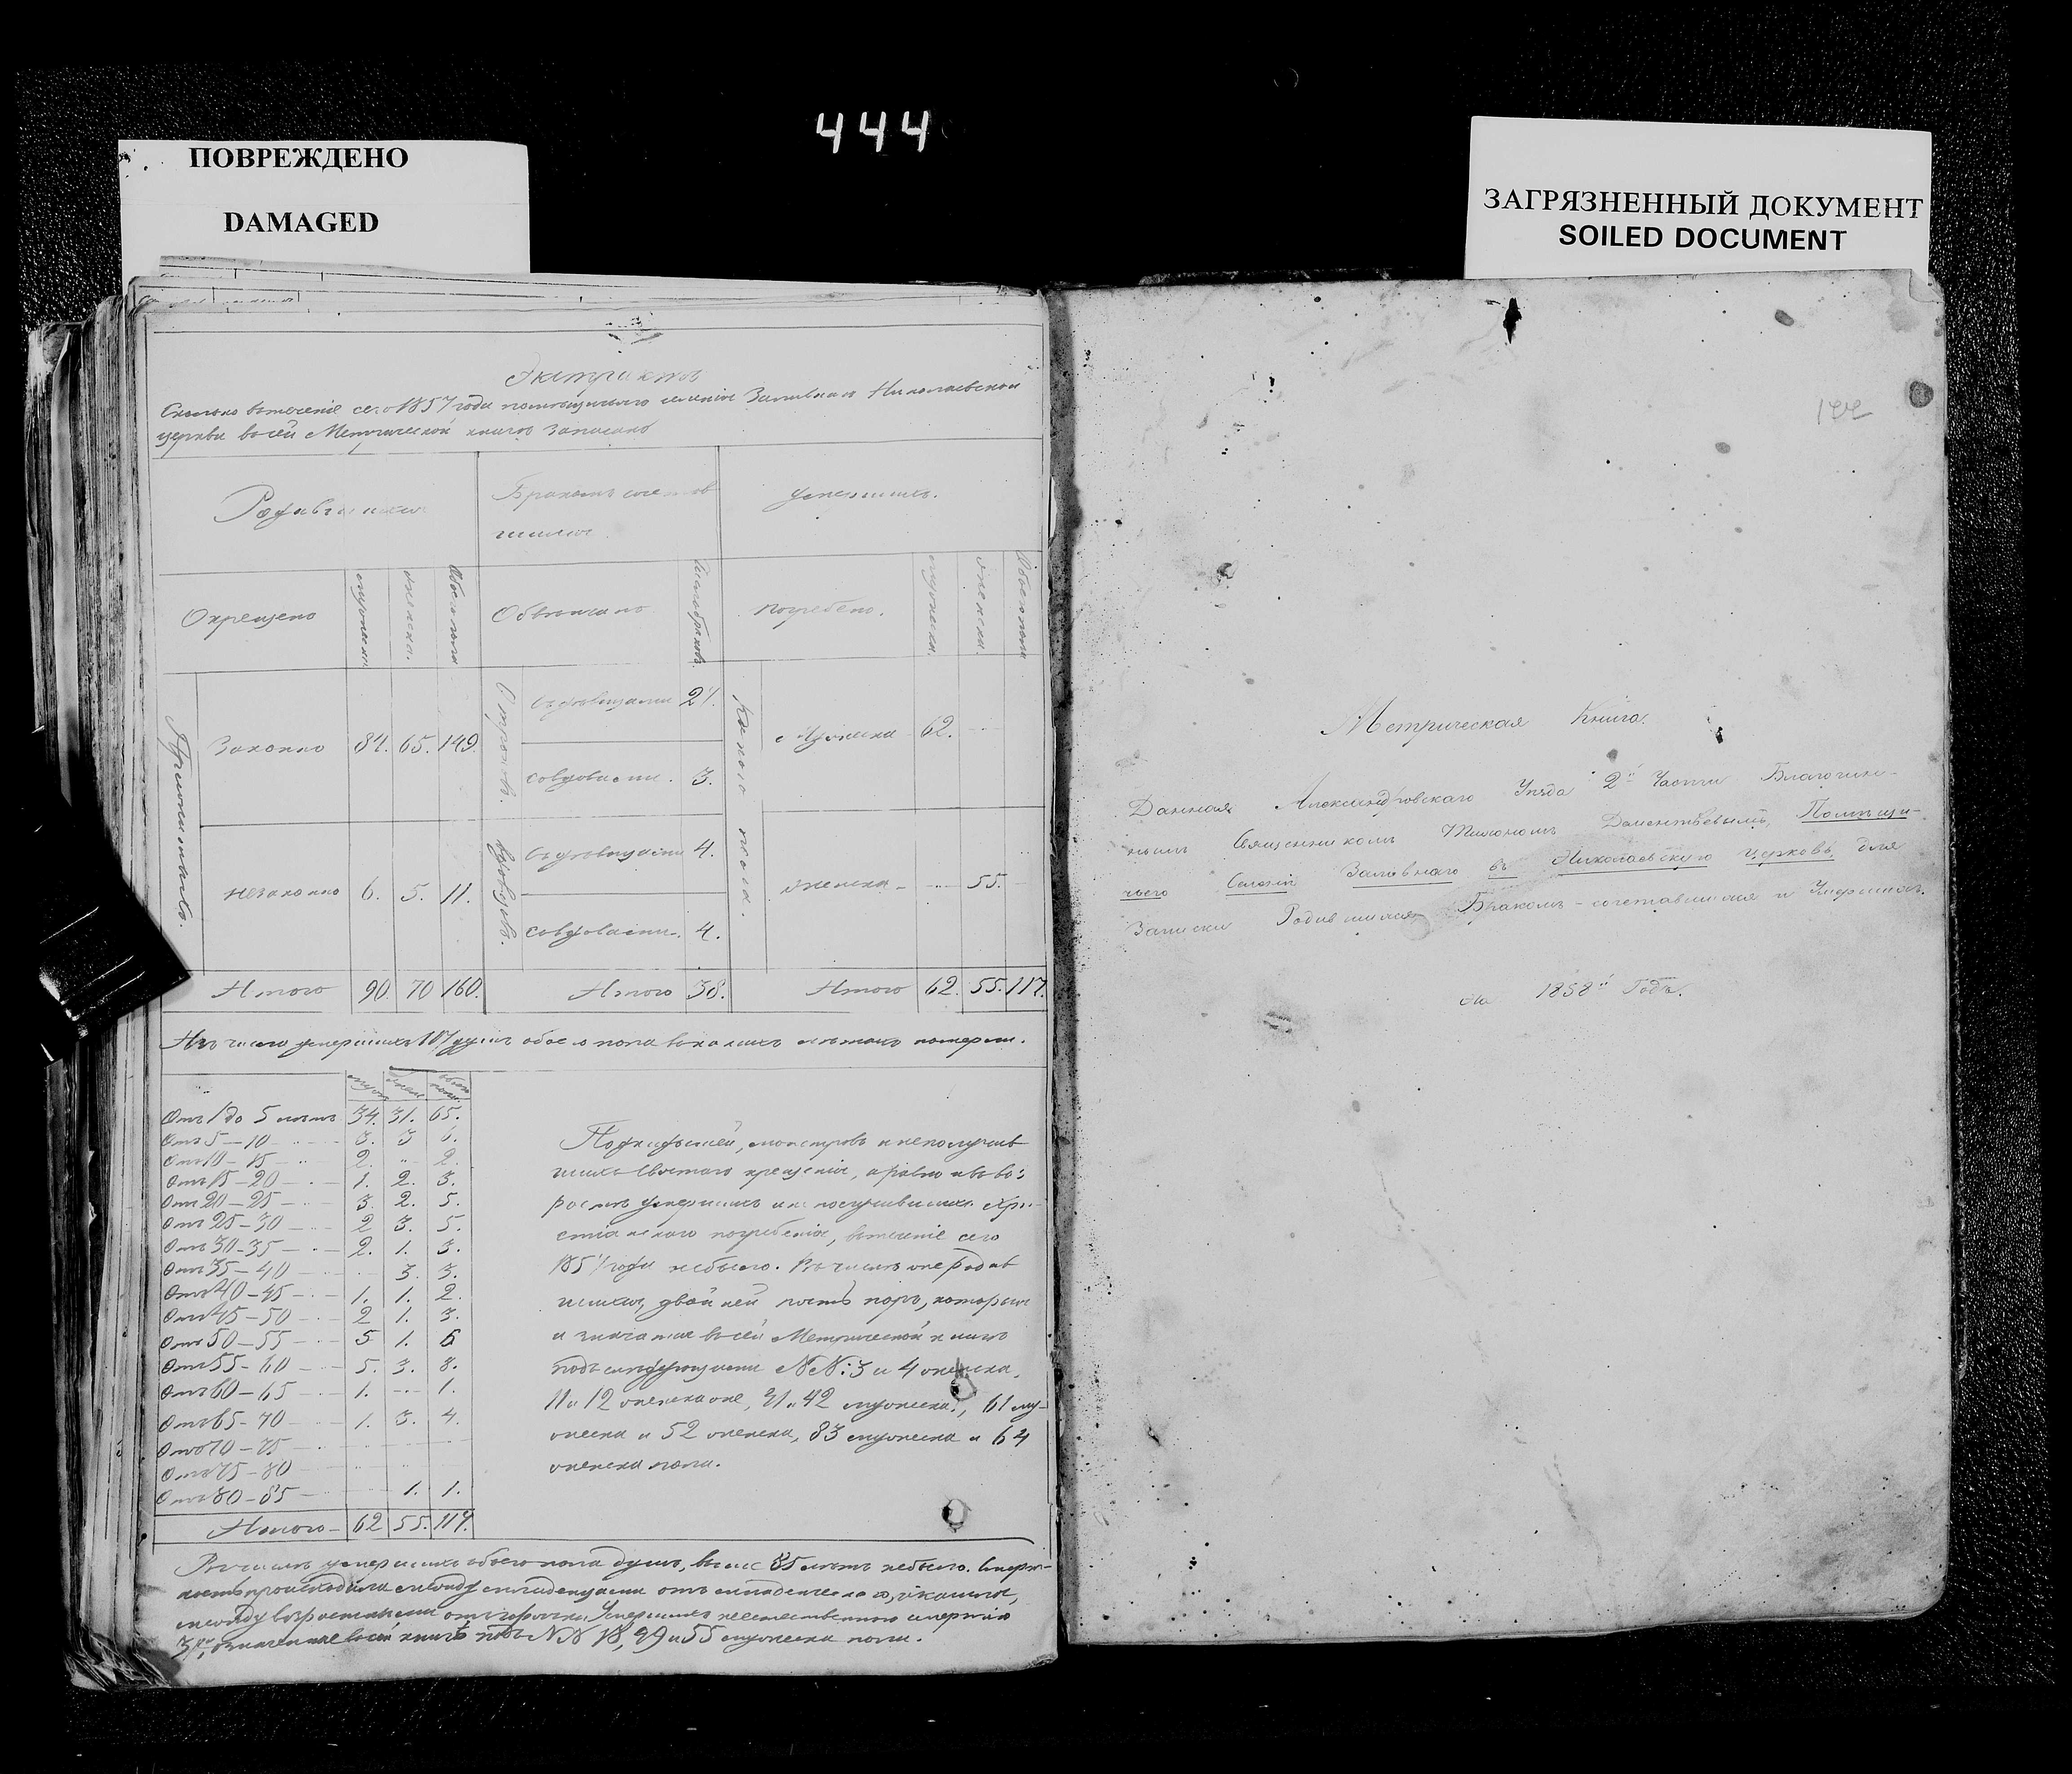 444
ПОВРЕЖДЕНО
DAMAGED
ЗАГРЯЗНЕННЫЙ ДОКУМЕНТ
SOILED DOCUMENT
Экстрактъ
Сколько втеченіе сего 1857 года помѣщичьяго селенія Заливнаго Николаевской
церкви всей Метрической книгѣ записано
Родившихся
Бракомъ сочетав
шихся
умершихъ.
Окрещено
мужеска.
женска.
Обоего пола
Обвѣнчано
Число браковъ
погребено.
мужеска.
женска.
Обоего пола
Законно 84. 65. 149.
съ дѣвицами 27.
со вдовами. 3.
Какого пола.
Мужеска 62.
незаконно 6. 5. 11.
вдовцовъ.
съ дѣвицами 4.
со вдовами. 4.
женска 55.
Итого 90. 70 160.
Итого 38.
Итого 62. 55. 117.
Изъ числа умершихъ 117 душъ обоего пола въ какихъ лѣтахъ померли.
Отъ 1 до 5 лѣтъ 34. 31. 65.
Отъ 5-10 3. 3 6.
Отъ 10-15 2. 2.
Отъ 15-20 1. 2. 3.
Отъ 20-25 3. 2. 5.
Отъ 25-30 2 3. 5.
Отъ 30-35 2. 1. 3.
Отъ 35-40 3. 3.
Отъ 40-45 1. 1. 2.
Отъ 45-50 2 1. 3.
Отъ 50-55 5 1. 6
Отъ 55-60 5. 3. 8.
Отъ 60-65 1. 1.
Отъ 65-70 1. 3. 4.
Отъ 70-75
Отъ 75-80
Отъ 80-85 1. 1.
Итого 62 55. 117.
Подкидышей, монстровъ и неполучив
шихъ Святаго крещенія, а равно и въ воз
растѣ умершихъ и неполучившихъ Хри
стіанскаго погребенія, втеченіе сего
1857 года небыло. Въ числѣ же родив
шихся, двойней пять паръ, которыя
и значатся всей Метрической книгѣ
подъ слѣдующими NN: 3 и 4 женска,
11 и 12 женска же, 41 и 42 мужеска, 61 му-
жеска и 52 женска, 83 мужеска и 64
женска пола.
Въ числѣ умершихъ обоего пола душъ, выше 85 лѣтъ небыло. Смерт-
ность происходила между младенцами отъ младенческаго и кашля,
между возрастными отъ горячки. Умершихъ неестественною смертію
3, означенные всей книгѣ подъ NN 18, 29 и 55 мужеска пола.
Метрическая Книга.
Данная Александровскаго Уѣзда 2й Части Благочин-
нымъ Священникомъ Дометьевымъ, Помѣщи-
чьяго Селенія Заливнаго въ Николаевскую церковь, для
Записки Родившихся Бракомъ-сочетавшихся и Умершихъ.
На 1858й Годъ.